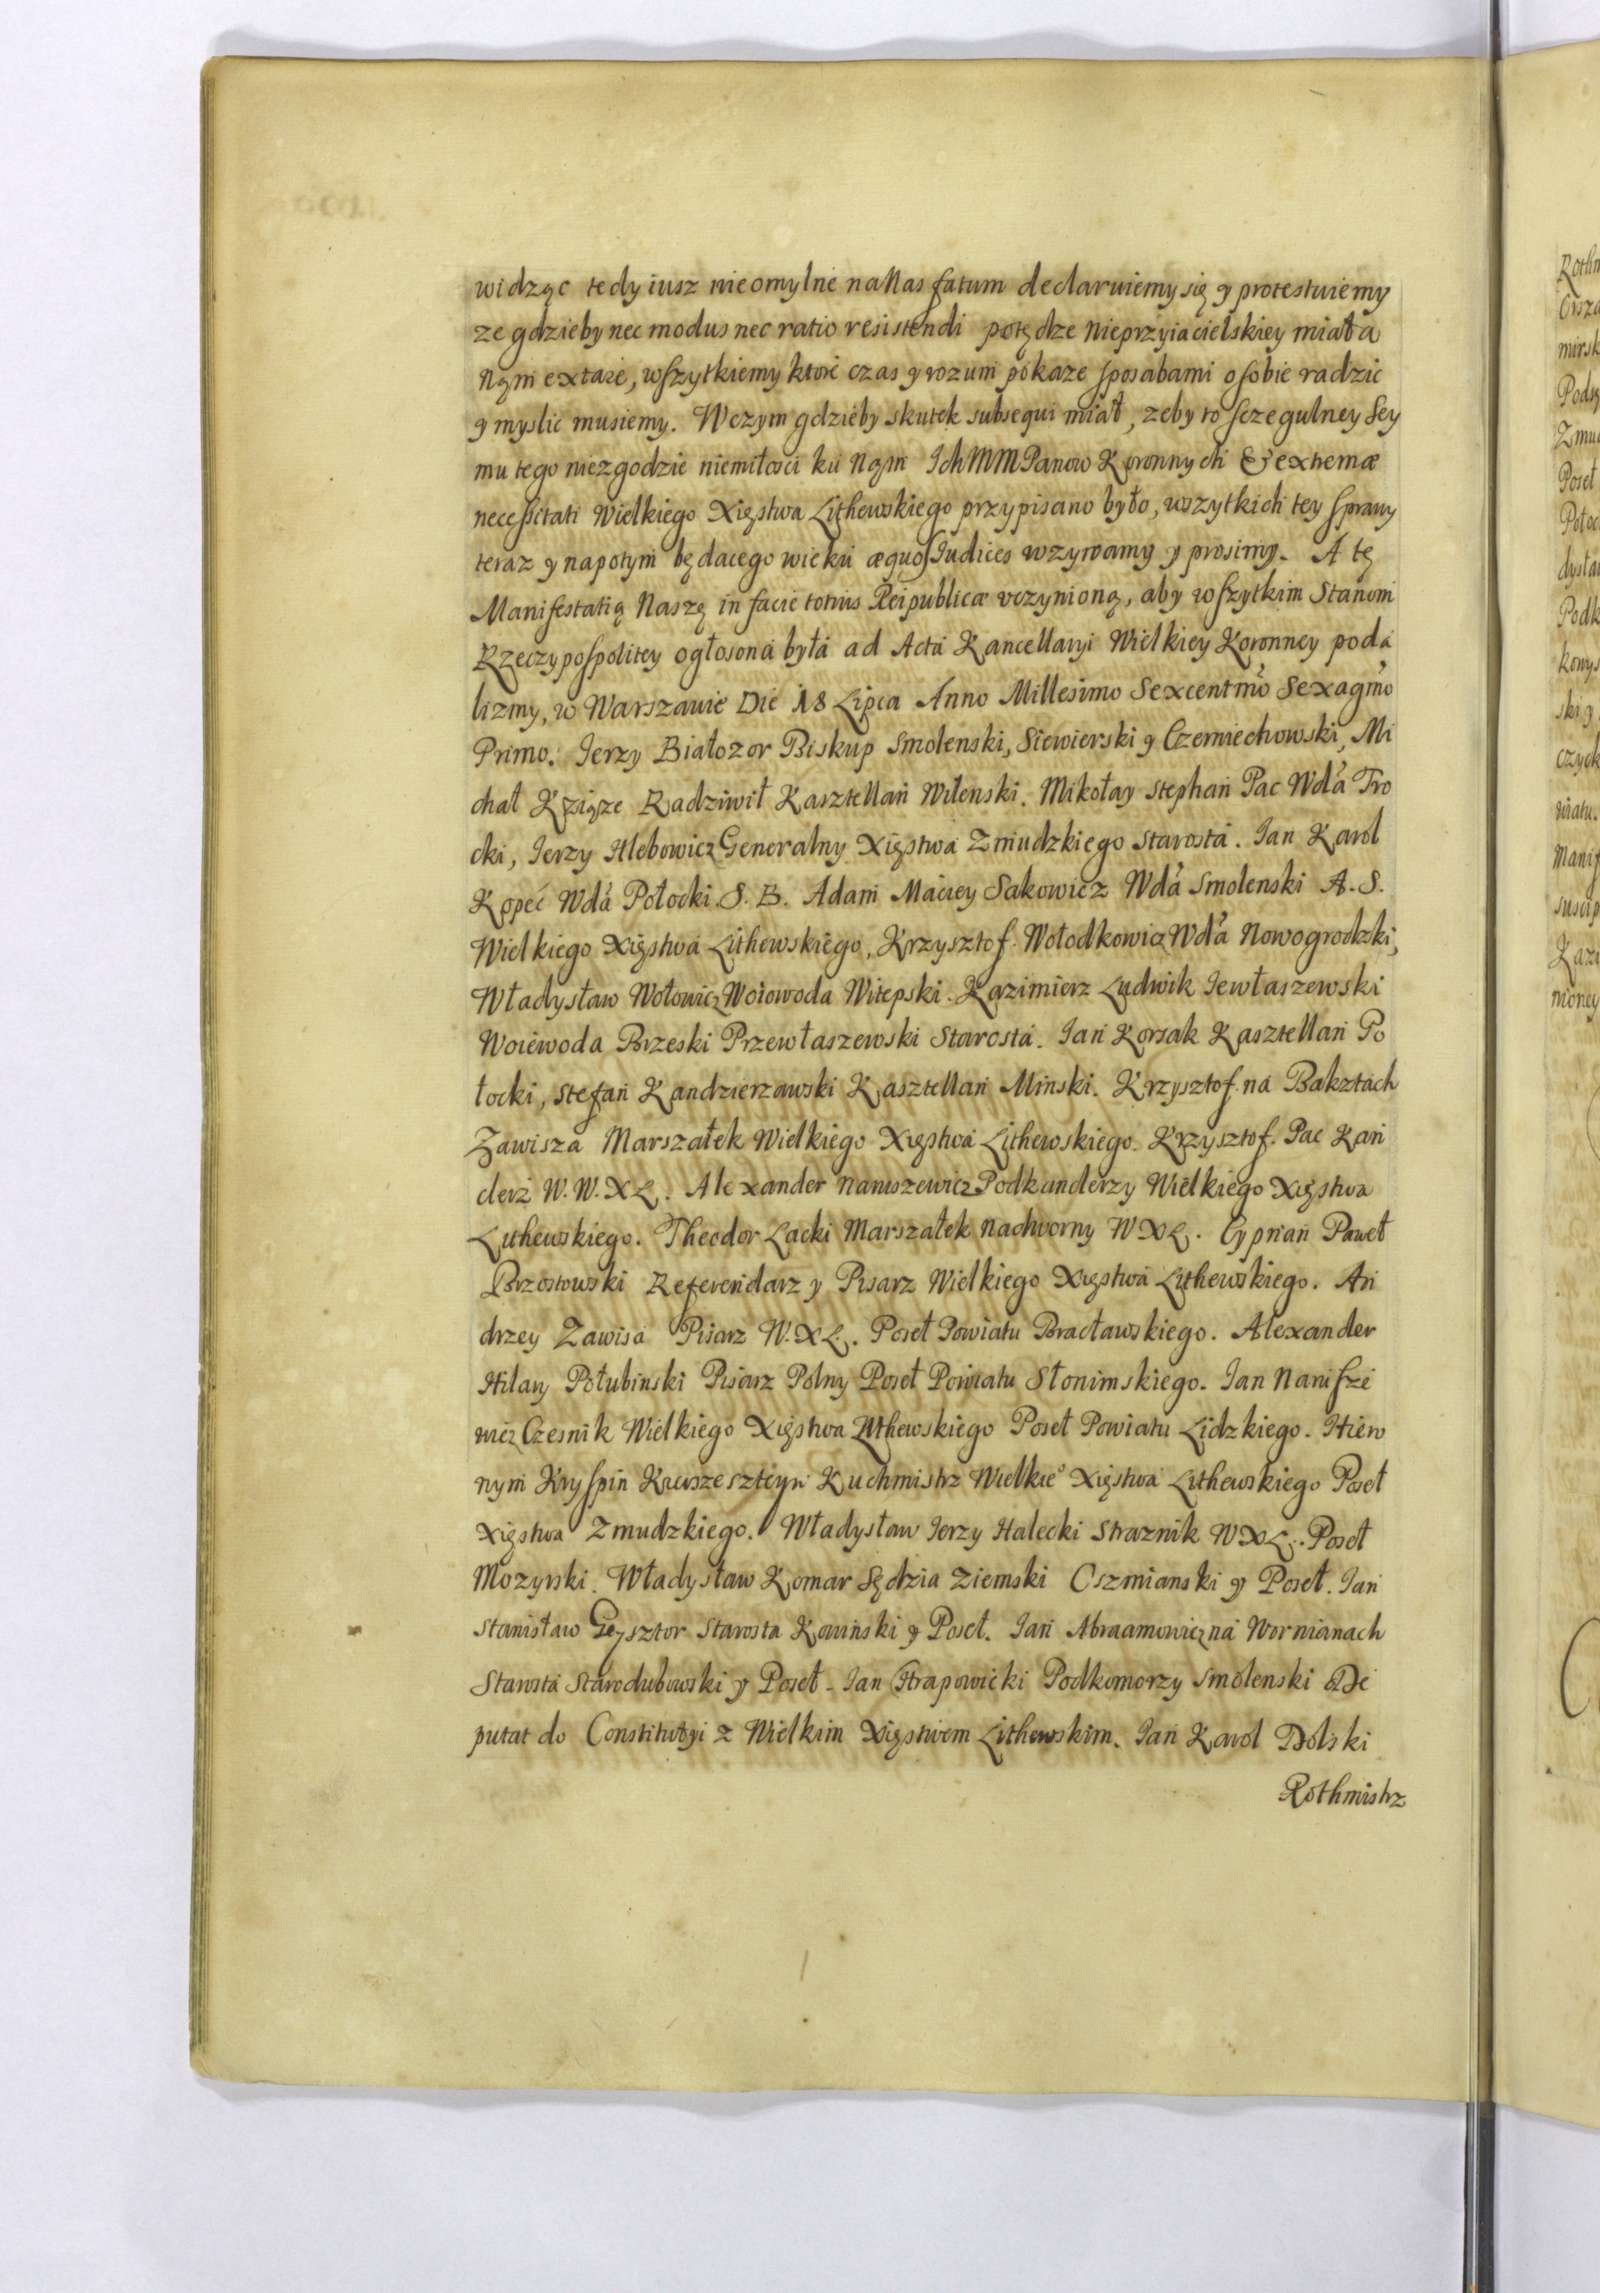 widząc tedy iusz nieomylne na Nas fatum declaruiemy się y protestuiemy
ze gdzieby nec modus nec ratio resistendi potędze Nieprzyiacielskiey miała
Nąm extare, wszytkiemy ktore czas y rozum pokaze sposabami o sobie radzic
y myslic musiemy. W czym gdzieby skutek subsequi miał, zeby to sczegulney Sey
mu tego niezgodzie niemiłosci ku Nąm Ich MM Panow Koronnych & extremæ
necessitati Wielkiego Xięstwa Lithewskiego przypisano było, wszytkich tey sprawy
teraz y napotym będacego wieku æquos Iudices wzywamy y prosimy. A tę
Manifestatią Naszę in facie totius Reipublicæ vczynioną, aby wszytkim Stanom
Rzeczypospolitey ogłosona była ad Acta Kancellaryi Wielkiey Koronney poda
lizmy, w Warszawie Die 18 Lipca Anno Millesimo Sexcentmo Sexagmo
Primo. Ierzy Białozor Biskup Smolenski, Siewierski y Czerniechowski, Mi
chał Xsiąze Radziwił Kasztellan Wilenski. Mikołay Stephan Pac Wda Tro
cki, Ierzy Hlebowicz Generalny Xięstwa Zmudzkiego Starosta. Ian Karol
Kopeć Wda Połocki. S. B. Adam Maciey Sakowicz Wda Smolenski A. S.
Wielkiego Xięstwa Lithewskiego, Krzysztof Wołodkowicz Wda Nowogrodzki,
Władysław Wołowicz Woiowoda Witepski. Kazimierz Ludwik Iewłaszewski
Woiewoda Brzeski Przewłaszewski Starosta. Ian Korsak Kasztellan Po
łocki, Stefan Kandzierzawski Kasztellan Minski. Krzysztof na Baksztach
Zawisza Marszałek Wielkiego Xięstwa Lithewskiego. Krzysztof Pac Kan
clerz W. W. X L. Alexander Naruszewicz Podkanclerzy Wielkiego Xięstwa
Lithewskiego. Theodor Lacki Marszałek Nadworny W X L. Cyprian Paweł
Brzostowski Referendarz y Pisarz Wielkiego Xięstwa Lithewskiego. An
drzey Zawisa Pisarz W. X L. Poseł Powiatu Bracławskiego. Alexander
Hilary Połubinski Pisarz Polny Poseł Powiatu Słonimskiego. Ian Narusze
wicz Czesnik Wielkiego Xięstwa Lithewskiego Poseł Powiatu Lidzkiego. Hiero
nym Kryspin Kirszeszteyn Kuchmistrz Wielkieo Xięstwa Lithewskiego Poseł
Xięstwa Zmudzkiego. Władysław Ierzy Halecki Straznik W X L. Poseł
Mozyrski. Władysław Komar Sędzia Ziemski Oszmianski y Poseł. Ian
Stanisław Geysztor Starosta Kowinski y Poseł. Ian Abraamowicz na Wornianach
Starosta Starodubowski y Poseł. Ian Hrapowicki Podkomorzy Smolenski De
putat do Constitutyi z Wielkim Xięstwem Lithewskim. Ian Karol Dolski
Rothmistrz